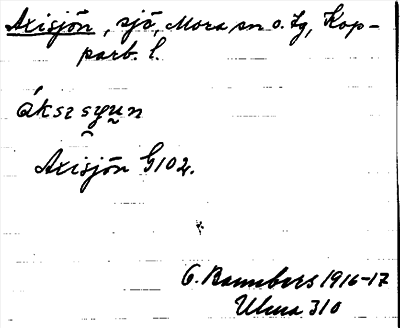 Axisjön, sjö, Mora sn o. tg, Kop-
parb. l.
áksɪsyun
Axisjön G102.
1916-17
Ulma 310